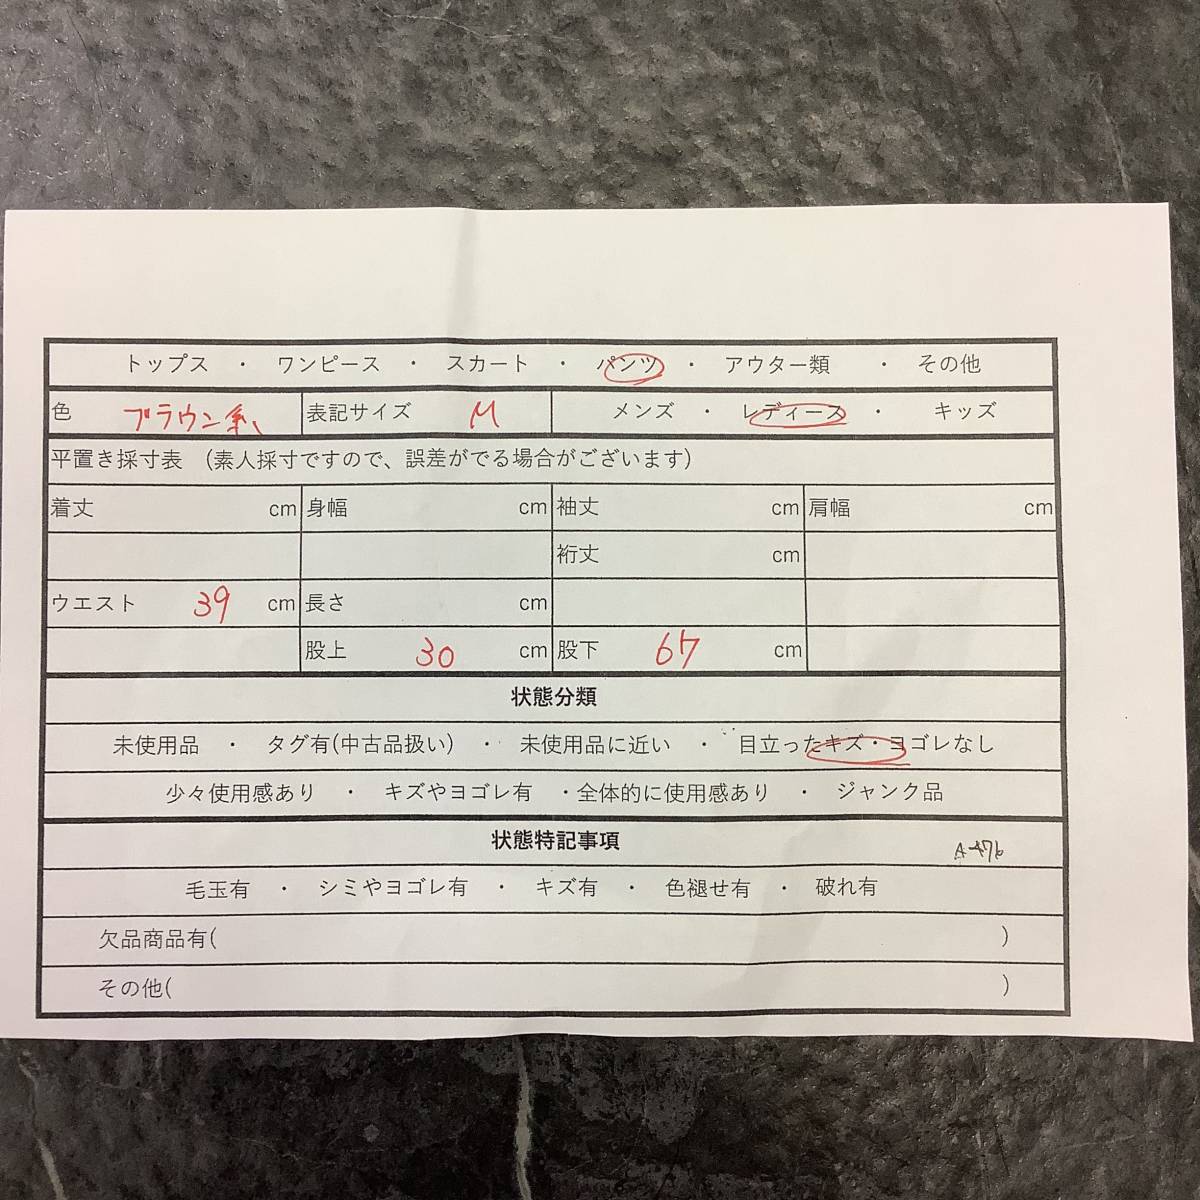 トップス ・ ワンピース ・ スカート ・ パンツ ・ アウター類 ・ その他
色 ブラウン系 表記サイズ M メンズ ・ レディース ・ キッズ
平置き採寸表 (素人採寸ですので、誤差がでる場合がございます)
着丈 cm 身幅 cm 袖丈 cm 肩幅 cm
裄丈 cm
ウエスト 39 cm 長さ cm
股上 30 cm 股下 67 cm
状態分類
未使用品 ・ タグ有(中古品扱い) ・ 未使用品に近い ・ 目立ったキズ・ヨゴレなし
少々使用感あり ・ キズやヨゴレ有 ・全体的に使用感あり ・ ジャンク品
状態特記事項
毛玉有 ・ シミやヨゴレ有 ・ キズ有 ・ 色褪せ有 ・ 破れ有
欠品商品有( )
その他( )